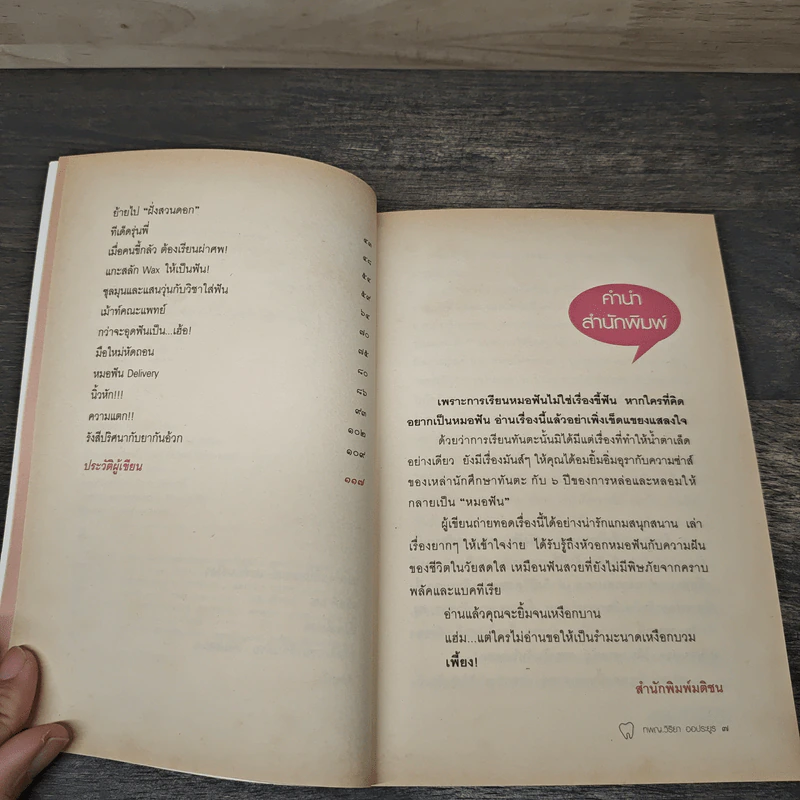 ย้ายไป “ฝั่งสวนดอก” ๔๓
ทีเด็ดรุ่นพี่ ๔๘
เมื่อคนขี้กลัว ต้องเรียนผ่าศพ! ๕๔
แกะสลัก Wax ให้เป็นฟัน! ๕๙
ชุลมุนและแสนวุ่นกับวิชาใส่ฟัน ๖๔
เม้าท์คณะแพทย์ ๗๐
กว่าจะอุดฟันเป็น...เฮ้อ! ๗๕
มือใหม่หัดถอน ๘๐
หมอฟัน Delivery ๘๖
นิ้วหัก!!! ๙๓
ความแตก!! ๑๐๒
รังสีปริศนากับยากันอ้วก ๑๐๙
ประวัติผู้เขียน ๑๑๗
คำนำ
สำนักพิมพ์
เพราะการเรียนหมอฟันไม่ใช่เรื่องขี้ฟัน หากใครที่คิด
อยากเป็นหมอฟัน อ่านเรื่องนี้แล้วอย่าเพิ่งเข็ดแขยงแสลงใจ
ด้วยว่าการเรียนทันตะนั้นมิได้มีแต่เรื่องที่ทำให้น้ำตาเล็ด
อย่างเดียว ยังมีเรื่องมันส์ๆ ให้คุณได้อมยิ้มอิ่มอุรากับความซ่าส์
ของเหล่านักศึกษาทันตะ กับ ๖ ปีของการหล่อและหลอมให้
กลายเป็น “หมอฟัน”
ผู้เขียนถ่ายทอดเรื่องนี้ได้อย่างน่ารักแกมสนุกสนาน เล่า
เรื่องยากๆ ให้เข้าใจง่าย ได้รับรู้ถึงหัวอกหมอฟันกับความฝัน
ของชีวิตในวัยสดใส เหมือนฟันสวยที่ยังไม่มีพิษภัยจากคราบ
พลัคและแบคทีเรีย
อ่านแล้วคุณจะยิ้มจนเหงือกบาน
แฮ่ม...แต่ใครไม่อ่านขอให้เป็นรำมะนาดเหงือกบวม
เพี้ยง!
สำนักพิมพ์มติชน
ทพญ.วิริยา ออประยูร ๗